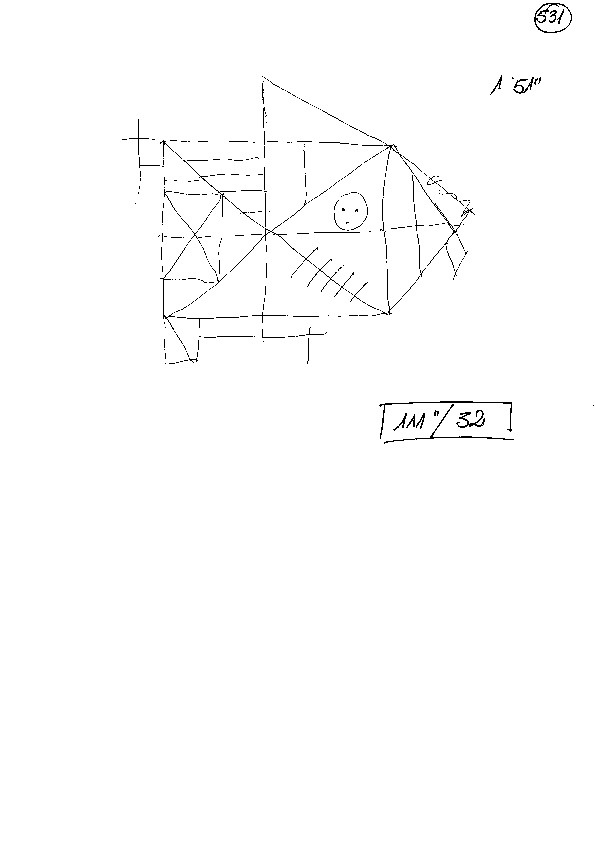 531
1'51"
111"/32